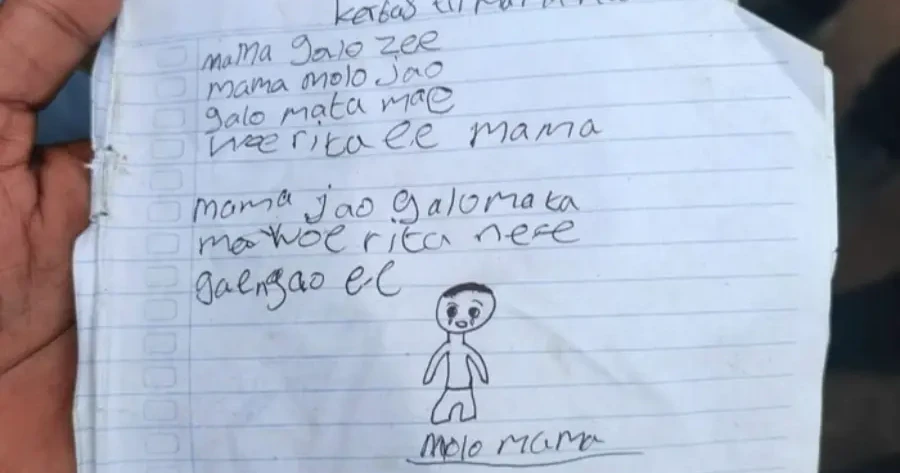 kertas tii
mama galo zee
mama molo jao
galo mata mae
woe rita ee mama
mama jao galo mata
mae woe rita ne e e
gaengao ee
molo mama